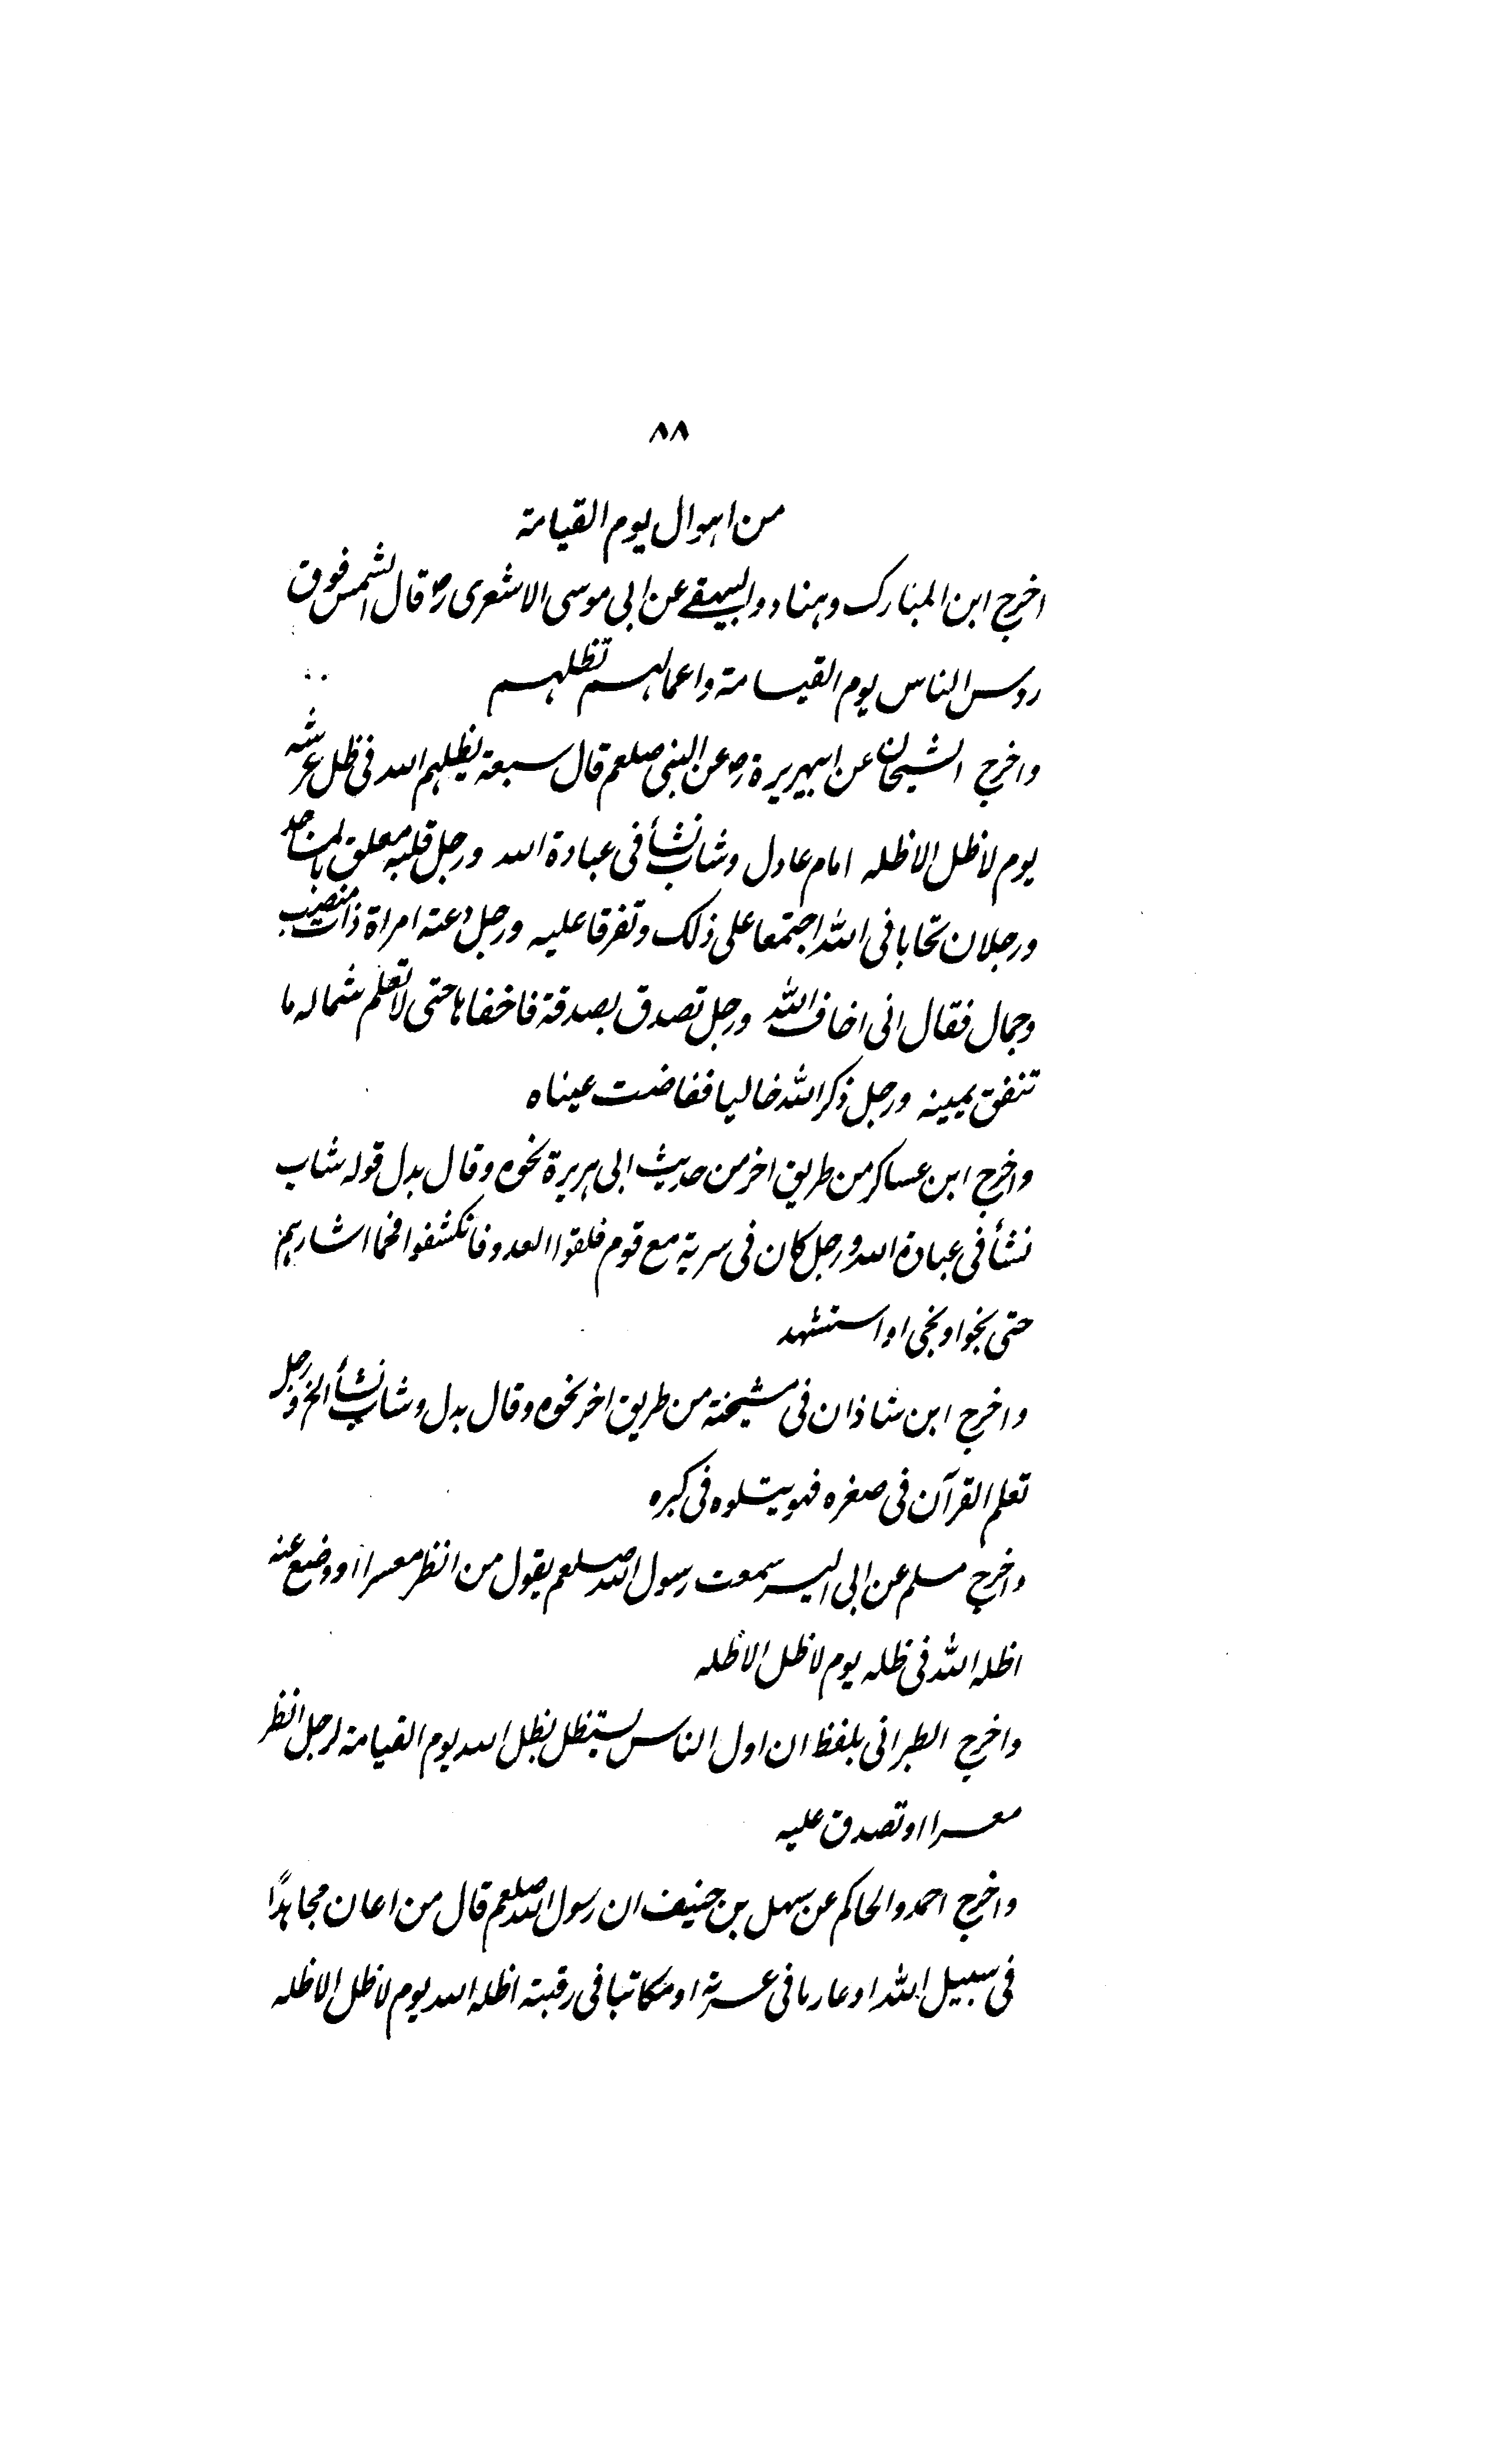 ٨٨
من اهوال يوم القيامة
اخرج ابن المبارك وهناد والبيهقے عن ابي موسى الاشعرى رض قال الشمس فوق
روس الناس يوم القيسامة واعمالهم تظلهم
واخرج الشيخان عن ابيهريرة رض عن النبي صلعم قال سبعة يظلهم الله فى ظل عرشه
يوم لاظل الاظله امام عادل وشاب نشأ فى عبادة الله ورجل قلبه معلق بالمساجد
ورجلان تحابا فى الله اجتمعا على ذلك وتفرقا عليه ورجل دعته امراة ذات منصب
وجمال فقال انى اخاف الله ورجل تصدق بصدقة فاخفاها حتى لاتعلم شماله ما
تنفق يمينه ورجل ذكر الله خاليا ففاضت عيناه
واخرج ابن عساكر من طريق اخر من حديث ابى هريرة نحوه وقال بدل قوله شاب
نشأ فى عبادة الله ورجل كان فى سرية مع قوم فلقوا العدو فانكشفوا فحما اثارهم
حتى نجوا ونجى او استشهد
واخرج ابن شاذان فى مشيخته من طريق اخر نحوه وقال بدل وشاب نشأ الخ ورجل
تعلم القرآن فى صغره فهو يتلوه فى كبره
واخرج مسلم عن ابى اليسر سمعت رسول الله صلعم يقول من انظر معسرا او وضع عنه
اظله الله فى ظله يوم لاظل الاظله
واخرج الطبرانى بلفظ ان اول الناس يستظل بظل الله يوم القيامة لرجل انظر
معسرا او تصدق عليه
واخرج احمد والحاكم عن سهل بن حنيف ان رسول الله صلعم قال من اعان مجاهدًا
فى سبيل الله او عارما فى عسرته او مكاتبا فى رقبته اظله الله يوم لاظل الاظله